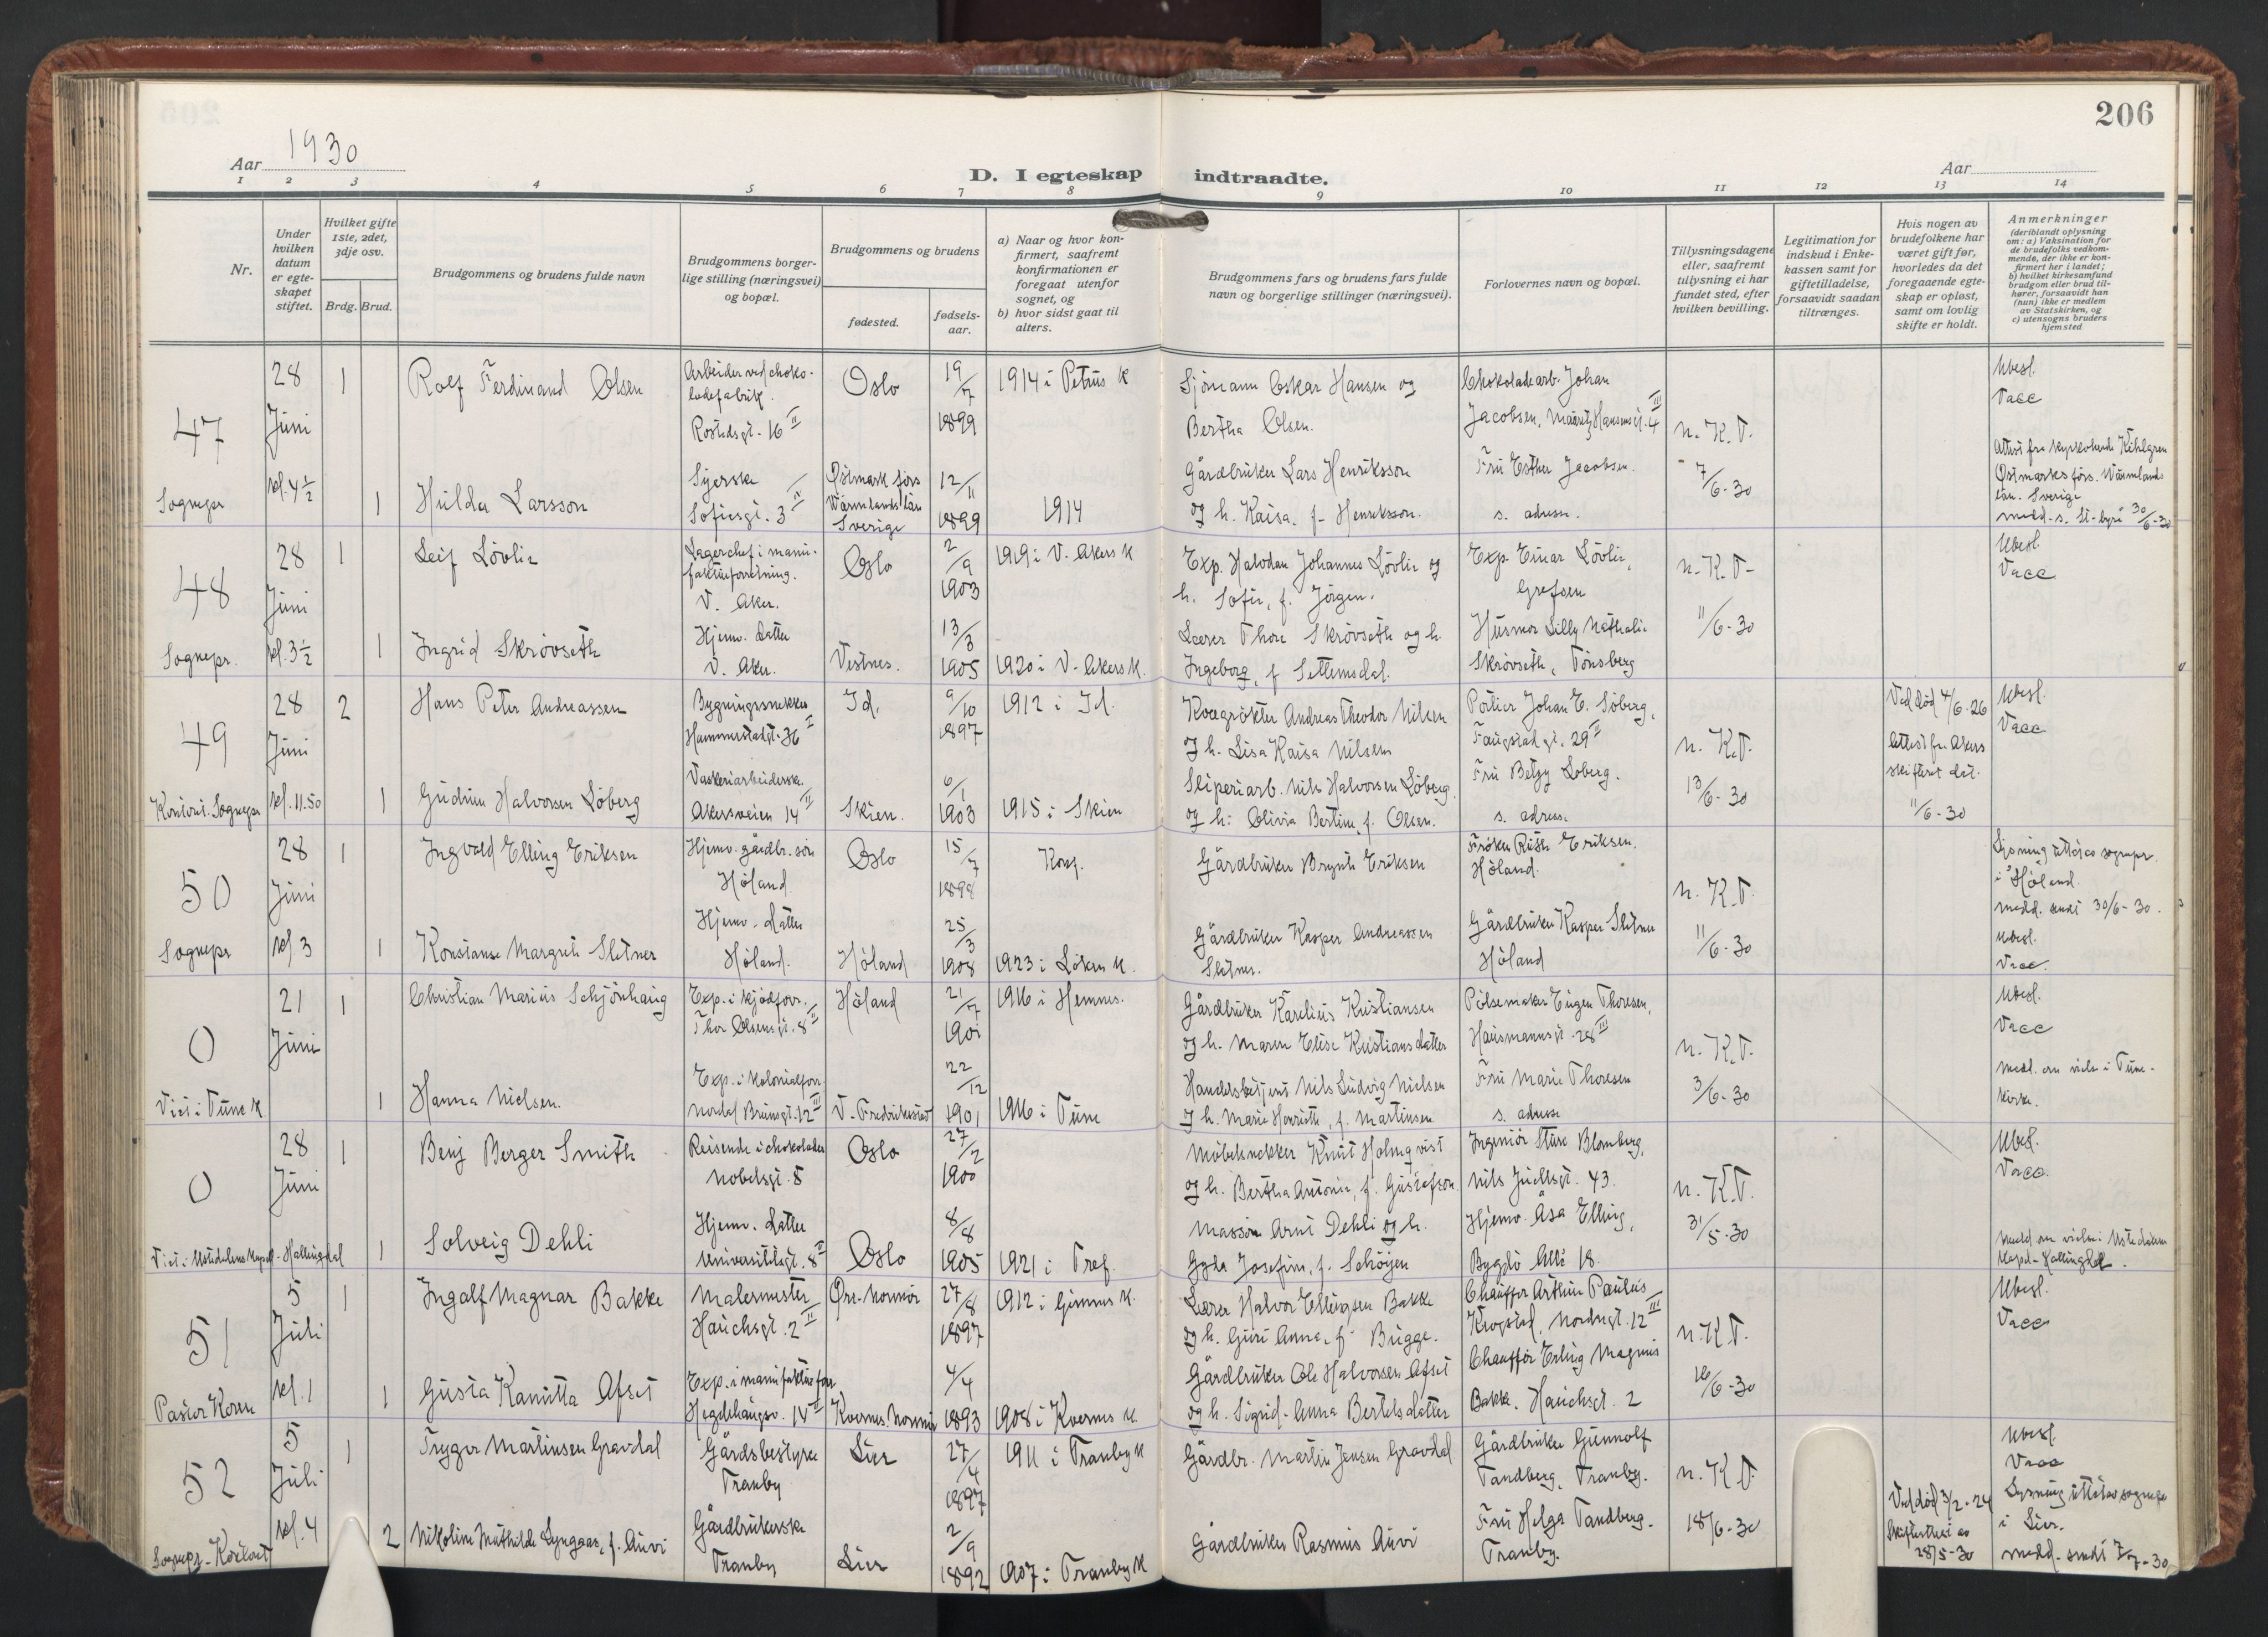 206
Aar 1930
D. I egteskap indtraadte.
Aar
1 2 3 4 5 6 7 8 9 10 11 12 13 14
Nr.
Under hvilken datum er egteskapet stiftet.
Hvilket gifte 1ste, 2det, 3dje osv.
Brdg. Brud.
Brudgommens og brudens fulde navn
Brudgommens borgerlige stilling (næringsvei) og bopæl.
Brudgommens og brudens
fødested.
fødselsaar.
a) Naar og hvor konfirmert, saafremt konfirmationen er foregaat utenfor sognet, og
b) hvor sidst gaat til alters.
Brudgommens fars og brudens fars fulde navn og borgerlige stillinger (næringsvei).
Forlovernes navn og bopæl.
Tillysningsdagene eller, saafremt tillysning ei har fundet sted, efter hvilken bevilling.
Legitimation for indskud i Enkekassen samt for giftetilladelse, forsaavidt saadan tiltrænges.
Hvis nogen av brudefolkene har været gift før, hvorledes da det foregaaende egteskap er opløst, samt om lovlig skifte er holdt.
Anmerkninger (deriblandt oplysning om: a) Vaksination for de brudefolks vedkommende, der ikke er konfirmert her i landet; b) hvilket kirkesamfund brudgom eller brud tilhører, forsaavidt han (hun) ikke er medlem av Statskirken, og c) utensogns bruders hjemsted
47 28 Juni kl. 4½ Sognepr
1 Rolf Ferdinand Olsen
Arbeider ved chokoladefabrik. Rostedsgt. 16 II
Oslo 19/7 1899 1914 i Petrus K
Sjömann Oskar Hansen og Bertha Olsen.
Chokoladearb. Johan Jacobsen, Mauritz Hansensgt. 4 III
n. K. T. 7/6-30
Ubesl. Vacc
1 Hulda Larsson
Syerske Sofiesgt. 3 II
Östmark förs Värmlands län Sverige 12/11 1899 1914
Gårdbruker Lars Henriksson og h. Kaisa, f. Henriksson.
Fru Esther Jacobsen. s. adresse.
Attest fra kyrkoherde Kihlgren Östmarks förs. Värmlands län. Sverige
medd. s. St-byrå 30/6-30
48 28 Juni kl. 3½ Sognepr.
1 Leif Lövlie
Lagerchef i manufakturforretning. V. Aker.
Oslo 2/9 1903 1919 i V. Akers K
Exp. Halvdan Johannes Lövlie og h. Sofie, f. Jörgen.
Exp. Einar Lövlie, Grefsen
n. K. T. 11/6-30
Ubesl. Vacc
1 Ingrid Skrövseth
Hjemv. datter V. Aker.
Vestnes. 13/3 1905 1920 i V. Akers K.
Lærer Thore Skrövseth og h. Ingeborg, f. Settemsdal.
Husmor Lilly Nathalie Skrövseth, Tönsberg
49 28 Juni kl. 11.50 Kontoret. Sognepr
2 Hans Peter Andreassen
Bygningssnekker Hammerstadgt. 36 I
Id. 9/10 1897 1912 i Id.
Kvegrökter Andreas Theodor Nilsen og h. Lisa Kaisa Nilsen
Portier Johan E. Soberg, Faugstadgt. 29 II
n. K.T. 13/6-30
Ved död 4/6-26 Attest fra Akers skifteret dat. 11/6-30
Ubesl. Vacc
1 Gudrun Halvorsen Löberg
Vaskeriarbeiderske. Akersveien 14 II
Skien. 6/1 1903 1915 i Skien
Sliperiarb. Nils Halvorsen Löberg og h. Olivia Bertine, f. Olsen.
Fru Betzy Loberg. s. adresse
50 28 Juni kl 3 Sognepr
1 Ingvald Elling Eriksen
Hjemv. gårdbr. sön Höland
Oslo 15/7 1898 Konf.
Gårdbruker Brynte Eriksen
Fröken Ruth Eriksen. Höland.
n. K.T. 11/6-30
Lysning utföres sognepr. i Höland.
medd. sendt 30/6-30.
Ubesl. Vacc.
1 Konstanse Margrete Slitner
Hjemv. datter Höland.
Höland 25/3 1908 1923 i Löken K.
Gårdbruker Kasper Andreassen Slitner.
Gårdbruker Kasper Slitner Höland
0 21 Juni Viet i Tune K
1 Christian Marius Schjönhaug
Exp. i kjödforr. Thor Olsensgt. 8 II
Höland 21/7 1901 1916 i Hemnes.
Gårdbruker Karelius Kristiansen og h. Maren Elise Kristiansdatter
Pölsemaker Eugen Thoresen, Hausmannsgt. 28 III
n. K.T. 3/6-30
Ubesl. Vacc
1 Hanna Nielsen.
Exp. i kolonialforr. Nordal Brunsgt. 12 III
V. Fredrikstad 22/12 1901 1916 i Tune
Handelsbetjent Nils Ludvig Nielsen og h. Marie Henriette, f. Martinsen
Fru Marie Thoresen s. adresse
medd. om vielse i Tune kirke.
0 28 Juni Viet i Ustedalens Kapell. Hallingdal
1 Benj Berger Smith
Reisende i chokolader Nobelsgt. 8
Oslo 27/2 1900
Möbelsnekker Knut Holmqvist og h. Bertha Antonie, f. Gustafson
Ingeniör Sture Blomberg, Nils Juelsgt. 43.
n. K.T. 31/5-30
Ubesl. Vacc.
1 Solveig Dehli
Hjemv. datter Universitetsgt. 8 II
Oslo 8/8 1905 1921 i Tref.
Massör Arnt Dehli og h. Gyda Josefine, f. Schöyen
Hjemv. Åsa Elling, Bygdö Allé 18.
medd. om vielse i Ustedalen Kapel. Hallingdal.
51 5 Juli kl. 1 Pastor Koren
1 Ingolf Magnar Bakke
Malermester Hauchsgt. 2 II
Öre. Nordmör 27/8 1897 1912 i Gimnes K.
Lærer Halvor Ellingsen Bakke og h. Guri Anna, f. Brügge.
Chauffør Arthur Paulus Krogstad, Nordregt. 12 III
n. K.T. 16/6-30
Ubesl. Vacc
1 Gusta Kamitta Afset
Exp. i manufakturforr Hegdehaugsv. 14 II
Kvernes Nordmör 4/4 1893 1908 i Kvernes K.
Gårdbruker Ole Halvorsen Afset og h. Sigrid Anna Bertelsdatter
Chauffør Erling Magnus Bakk. Hauchsgt. 2
52 5 Juli kl. 4 Sognepr.
1 Trygve Martinsen Gravdal
Gårdsbestyrer Tranby
Lier 27/4 1897 1911 i Tranby K
Gårdbr. Martin Jensen Gravdal
Gårdbruker Gunnolf Tandberg, Tranby.
n. K.T. 18/6-30
Ubesl. Vacc
2 Nikoline Mathilde Lyngaas, f. Auvi
Gårdbrukerske Tranby
Lier 2/9 1892 1907 i Tranby K
Gårdbruker Rasmus Auvi
Fru Helga Tandberg. Tranby.
Ved död 3/2-24 Skifteattest av 28/5-30
Lysning utföres sognepr i Lier.
medd. sendt 7/7-30